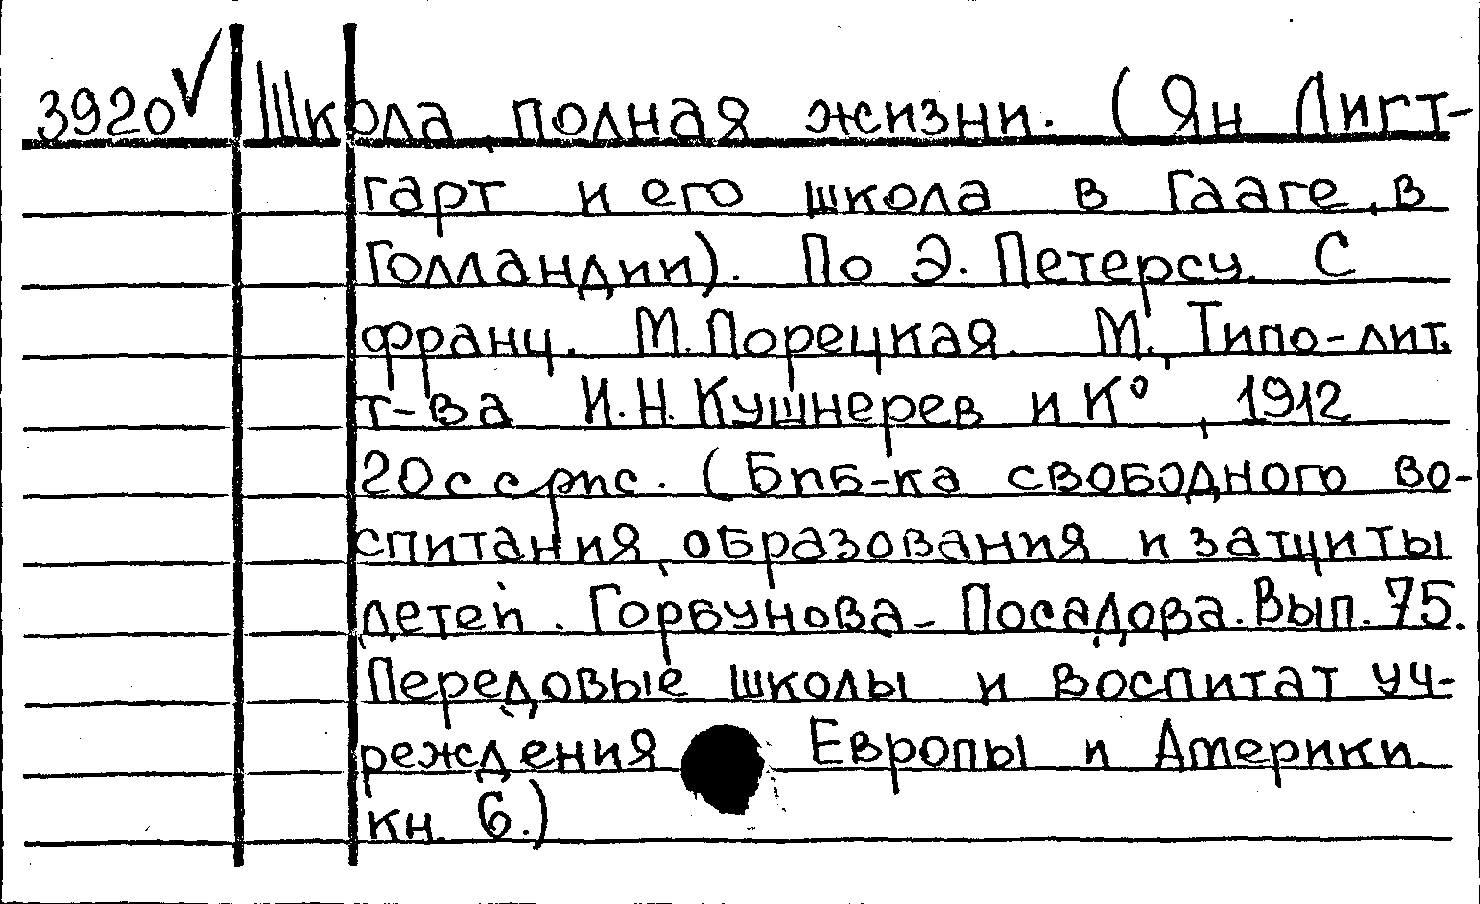 3920✓ Школа, полная жизни. (Ян Лигт-
гарт и его школа в Гааге, в
Голландии). По Э. Петерсу. С
франц. М. Порецкая. М., Типо-лит.
т-ва И.Н. Кушнерев и К°, 1912
20 с с рис. (Биб-ка свободного во-
спитания, образования и защиты
детей. Горбунова-Посадова. Вып. 75.
Передовые школы и воспитат уч-
реждения Европы и Америки
кн. 6.)